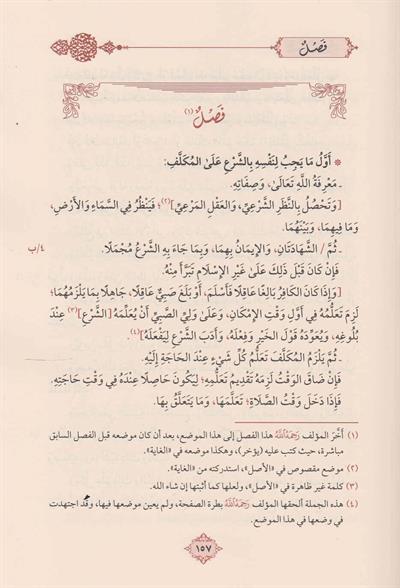 فَصْلٌ
فَصْلٌ (١)
* أَوَّلُ مَا يَجِبُ لِنَفْسِهِ بِالشَّرْعِ عَلَى المُكَلَّفِ:
ـ مَعْرِفَةُ اللَّهِ تَعَالَى، وَصِفَاتِهِ.
[وَتَحْصُلُ بِالنَّظَرِ الشَّرْعِيِّ، وَالعَقْلِ المَرْعِيِّ](٢)؛ فَيَنْظُرُ فِي السَّمَاءِ وَالأَرْضِ،
وَمَا فِيهِمَا، وَبَيْنَهُمَا.
ـ ثُمَّ / الشَّهَادَتَانِ، وَالإِيمَانُ بِهِمَا، وَبِمَا جَاءَ بِهِ الشَّرْعُ مُجْمَلًا.
٤/ب
فَإِنْ كَانَ قَبْلَ ذَلِكَ عَلَى غَيْرِ الإِسْلَامِ تَبَرَّأَ مِنْهُ.
[وَإِذَا كَانَ الكَافِرُ بَالِغًا عَاقِلًا فَأَسْلَمَ، أَوْ بَلَغَ صَبِيٌّ عَاقِلًا، جَاهِلًا بِمَا يَلْزَمُهُمَا؛
لَزِمَ تَعَلُّمُهُ فِي أَوَّلِ وَقْتِ الإِمْكَانِ، وَعَلَى وَلِيِّ الصَّبِيِّ أَنْ يُعَلِّمَهُ [الشَّرْعَ](٣) عِنْدَ
بُلُوغِهِ، وَيُعَوِّدَهُ قَوْلَ الخَيْرِ وَفِعْلَهُ، وَأَدَبَ الشَّرْعِ لِيَفْعَلَهُ].(٤)
ـ ثُمَّ يَلْزَمُ المُكَلَّفَ تَعَلُّمُ كُلِّ شَيْءٍ عِنْدَ الحَاجَةِ إِلَيْهِ.
فَإِنْ ضَاقَ الوَقْتُ لَزِمَهُ تَقْدِيمُ تَعَلُّمِهِ؛ لِيَكُونَ حَاصِلًا عِنْدَهُ فِي وَقْتِ حَاجَتِهِ.
فَإِذَا دَخَلَ وَقْتُ الصَّلَاةِ؛ تَعَلَّمَهَا، وَمَا يَتَعَلَّقُ بِهَا.
(١) أخَّر المؤلف رَحِمَهُ اللَّهُ هذا الفصل إلى هذا الموضع، بعد أن كان موضعه قبل الفصل السابق
مباشرة، حيث كتب عليه (يؤخر)، وهكذا موضعه في «الغاية».
(٢) موضع مقصوص في «الأصل»، استدركته من «الغاية».
(٣) كلمة غير ظاهرة في «الأصل»، ولعلها كما أثبتها إن شاء الله.
(٤) هذه الجملة ألحقها المؤلف رَحِمَهُ اللَّهُ بطرة الصفحة، ولم يعين موضعها فيها، وقد اجتهدت
في وضعها في هذا الموضع.
١٥٧